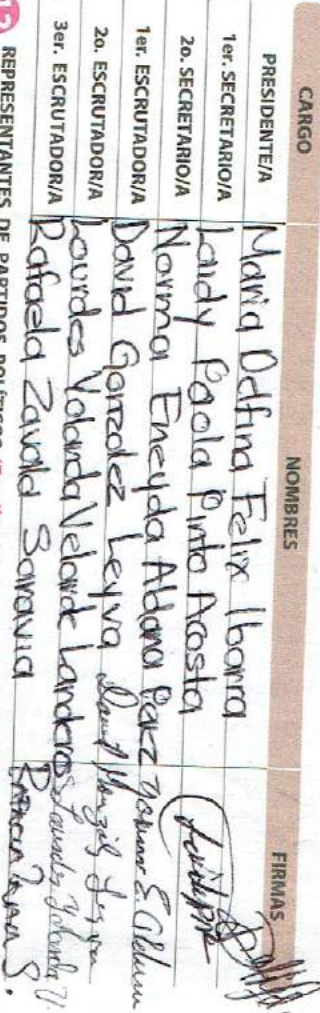 CARGO NOMBRES FIRMAS
PRESIDENTE/A Maria Delfina Felix Ibarra
1er. SECRETARIO/A Laidy Paola Pinto Acosta
2o. SECRETARIO/A Norma Eneyda Aldana Paez Norma E. Aldana
1er. ESCRUTADOR/A David Gonzalez Leyva David Gonzalez Leyva
2o. ESCRUTADOR/A Lourdes Yolanda Velarde Landeros Lourdes Yolanda V.
3er. ESCRUTADOR/A Rafaela Zavala Saravia
12 REPRESENTANTES DE PARTIDOS POLÍTICOS